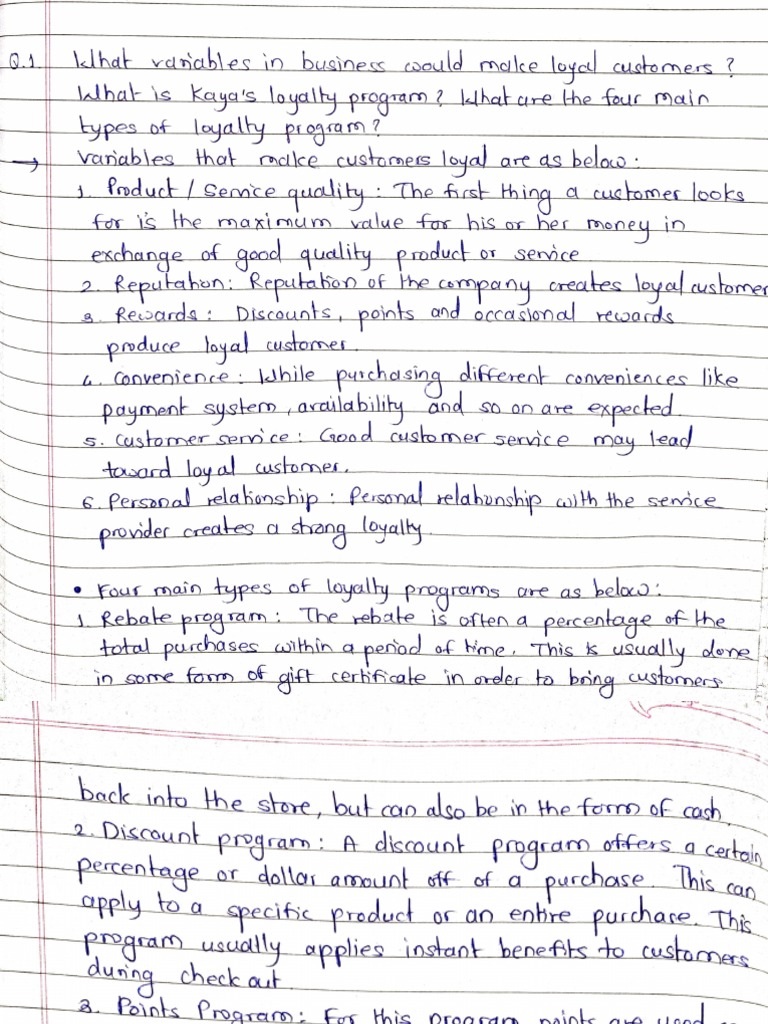 Q.1 What variables in business would make loyal customers?
What is Kaya's loyalty program? What are the four main
types of loyalty program?
→ variables that make customers loyal are as below:
1. Product / Service quality: The first thing a customer looks
for is the maximum value for his or her money in
exchange of good quality product or service
2. Reputation: Reputation of the company creates loyal customer
3. Rewards: Discounts, points and occasional rewards
produce loyal customer.
4. Convenience: While purchasing different conveniences like
payment system, availability and so on are expected.
5. Customer service: Good customer service may lead
toward loyal customer.
6. Personal relationship: Personal relationship with the service
provider creates a strong loyalty.
• Four main types of loyalty programs are as below:
1. Rebate program: The rebate is often a percentage of the
total purchases within a period of time. This is usually done
in some form of gift certificate in order to bring customers
back into the store, but can also be in the form of cash.
2. Discount program: A discount program offers a certain
percentage or dollar amount off of a purchase. This can
apply to a specific product or an entire purchase. This
program usually applies instant benefits to customers
during check out.
3. Points Program: For this program points are used